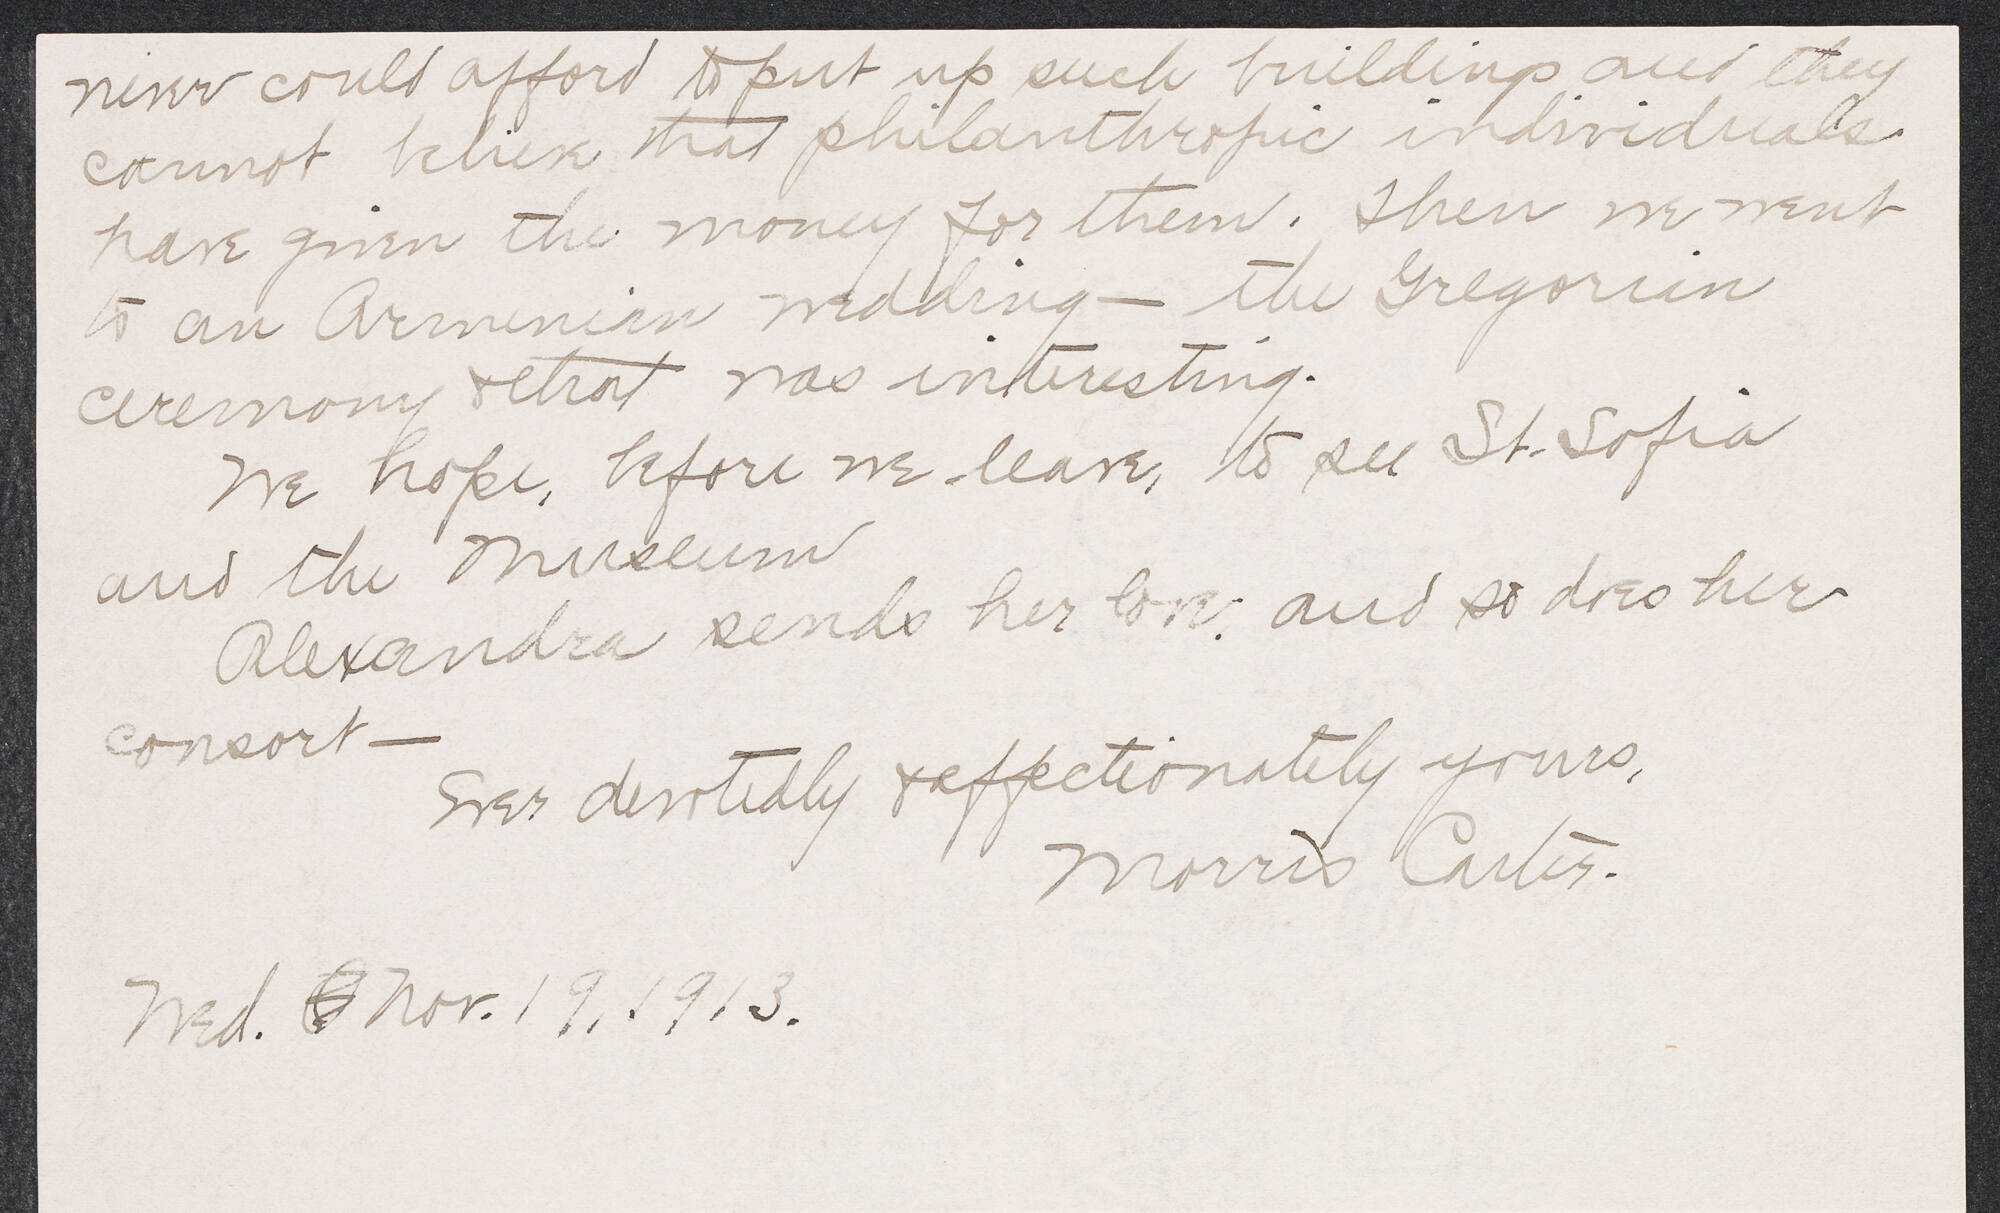 never could afford to put up such buildings and they
cannot believe that philanthropic individuals
have given the money for them. Then we went
to an Armenian wedding — the Gregorian
ceremony & that was interesting.
We hope, before we leave, to see St. Sofia
and the Museum
Alexandra sends her love, and so does her
consort —
Ever devotedly & affectionately yours,
Morris Carter.
Wed. Nov. 19, 1913.